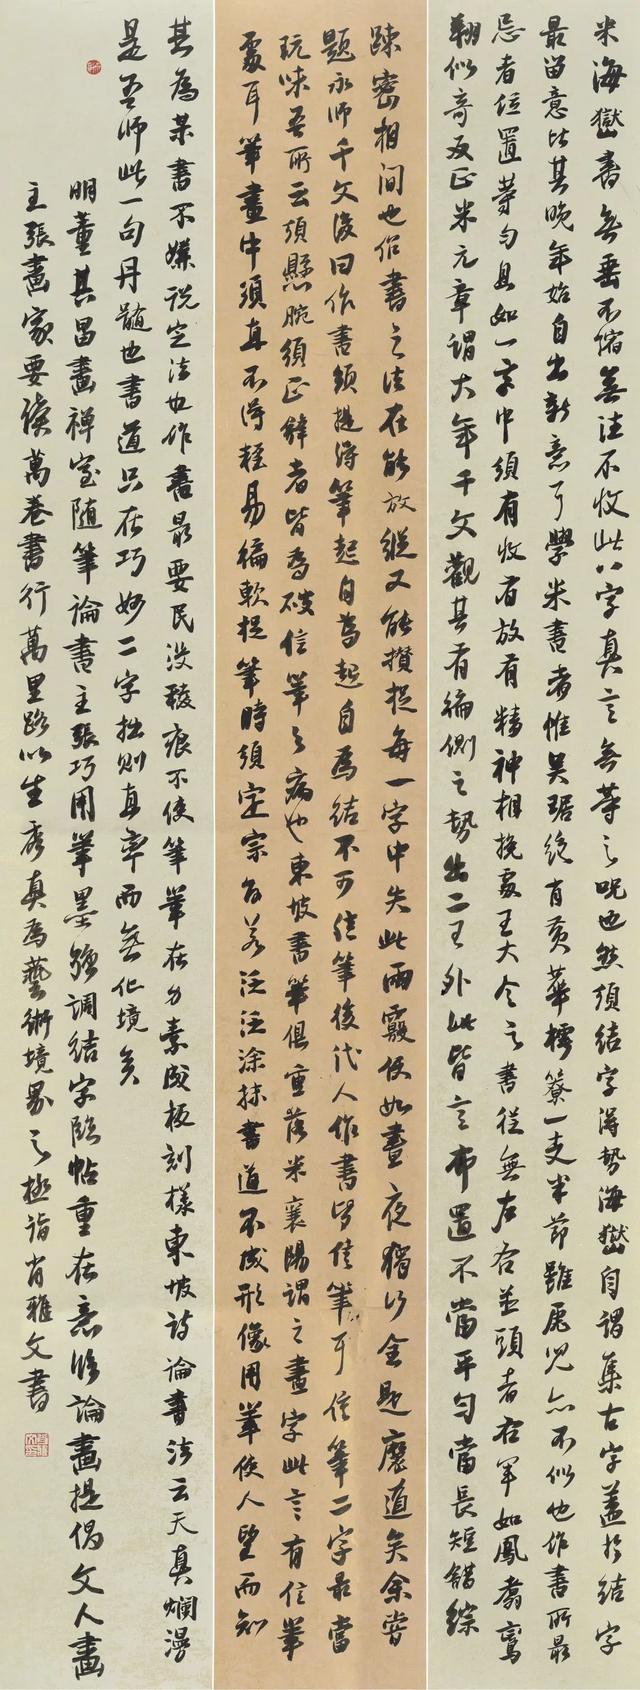 米海嶽書無垂不縮無往不收此八字真言無等之呪也然須結字得勢海嶽自謂集古字蓋於結字
最留意比其晚年始自出新意耳學米書者惟吳琚絕肖黃華樗寮一支半節雖虎兒亦不似也作書所最
忌者位置等勻且如一字中須有收有放有精神相挽處王大令之書從無左右並頭者右軍如鳳翥鸞
翔似奇反正米元章謂大年千文觀其有偏側之勢出二王外此皆言布置不當平勻當長短錯綜
疎密相間也作書之法在能放縱又能攢捉每一字中失此兩竅便如晝夜獨行全是魔道矣余嘗
題永師千文後曰作書須提得筆起自為起自為結不可信筆後代人作書皆信筆耳信筆二字最當
玩味吾所云須懸腕須正鋒者皆為破信筆之病也東坡書筆俱重落米襄陽謂之畫字此言有信筆
處耳筆畫中須直不得輕易偏軟捉筆時須定宗旨若泛泛塗抹書道不成形像用筆使人望而知
其為某書不嫌說定法也作書最要泯沒稜痕不使筆筆在紙素成板刻樣東坡詩論書法云天真爛漫
是吾師此一句丹髓也書道只在巧妙二字拙則直率而無化境矣
明董其昌畫禪室隨筆論書主張巧用筆墨強調結字臨帖重在意臨論畫提倡文人畫
主張畫家要讀萬卷書行萬里路以生秀真為藝術境界之極詣肖雅文書